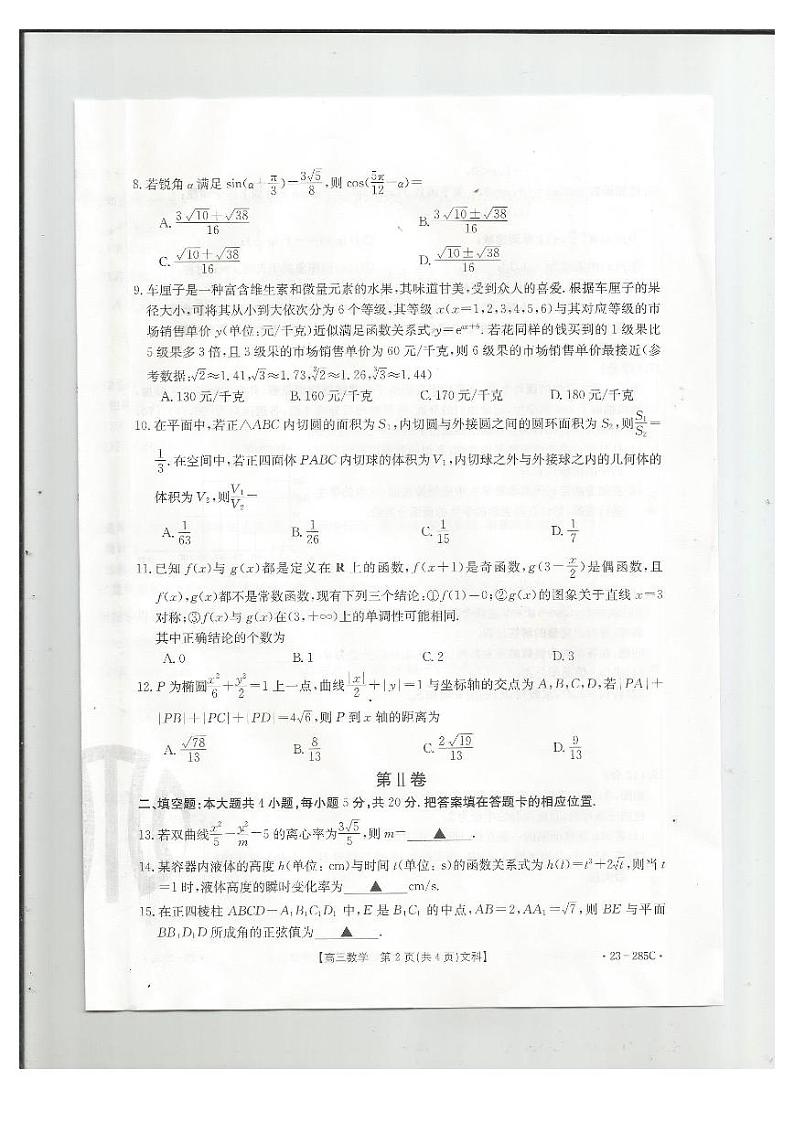 8.若锐角α满足 sin(α+π/3)=3√5/8,则 cos(5π/12-α)=
A. (3√10+√38)/16 B. (3√10±√38)/16
C. (√10+√38)/16 D. (√10±√38)/16
9.车厘子是一种富含维生素和微量元素的水果,其味道甘美,受到众人的喜爱.根据车厘子的果
径大小,可将其从小到大依次分为6个等级,其等级 x(x=1,2,3,4,5,6)与其对应等级的市
场销售单价 y(单位:元/千克)近似满足函数关系式 y=e^(ax+b).若花同样的钱买到的1级果比
5级果多3倍,且3级果的市场销售单价为60元/千克,则6级果的市场销售单价最接近(参
考数据:√2≈1.41,√3≈1.73,∛2≈1.26,∛3≈1.44)
A.130元/千克 B.160元/千克 C.170元/千克 D.180元/千克
10.在平面中,若正△ABC内切圆的面积为S₁,内切圆与外接圆之间的圆环面积为S₂,则S₁/S₂=
1/3.在空间中,若正四面体PABC内切球的体积为V₁,内切球之外与外接球之内的几何体的
体积为V₂,则V₁/V₂=
A. 1/63 B. 1/26 C. 1/15 D. 1/7
11.已知 f(x)与 g(x)都是定义在 R 上的函数,f(x+1)是奇函数,g(3-x/2)是偶函数,且
f(x),g(x)都不是常数函数,现有下列三个结论:①f(1)=0;②g(x)的图象关于直线 x=3
对称;③f(x)与 g(x)在(3,+∞)上的单调性可能相同.
其中正确结论的个数为
A.0 B.1 C.2 D.3
12.P为椭圆x²/6+y²/2=1上一点,曲线|x/2|+|y|=1与坐标轴的交点为A,B,C,D,若|PA|+
|PB|+|PC|+|PD|=4√6,则P到x轴的距离为
A. √78/13 B. 8/13 C. 2√19/13 D. 9/13
第Ⅱ卷
二、填空题:本大题共4小题,每小题5分,共20分.把答案填在答题卡的相应位置.
13.若双曲线x²/5-y²/m=5的离心率为3√5/5,则m= ▲ .
14.某容器内液体的高度h(单位:cm)与时间t(单位:s)的函数关系式为h(t)=t³+2√t,则当t
=1时,液体高度的瞬时变化率为 ▲ cm/s.
15.在正四棱柱 ABCD-A₁B₁C₁D₁ 中,E 是 B₁C₁ 的中点,AB=2,AA₁=√7,则 BE 与平面
BB₁D₁D所成角的正弦值为 ▲ .
【高三数学 第2页(共4页)文科】 ·23-285C·